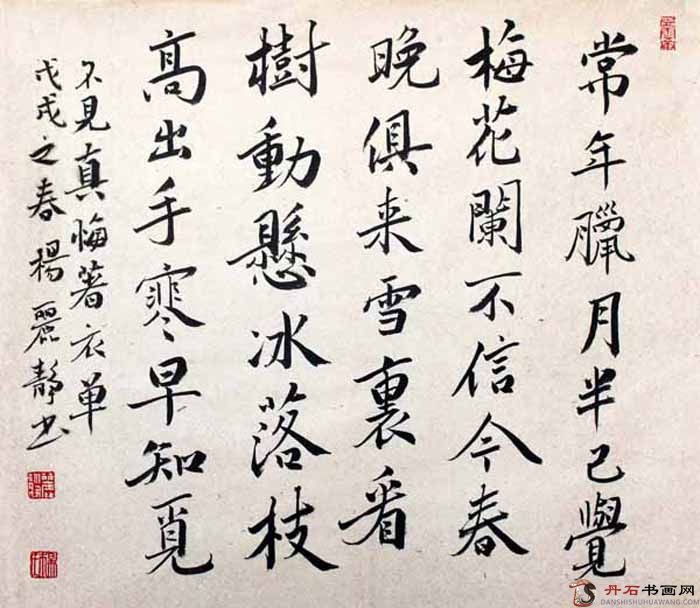 常年臘月半已覺
梅花闌不信今春
晚俱来雪裏看
樹動懸冰落枝
高出手寒早知覓
不見真悔著衣單
戊戌之春楊麗靜书
丹石书画网
DANSHISHUHUAWANG.COM